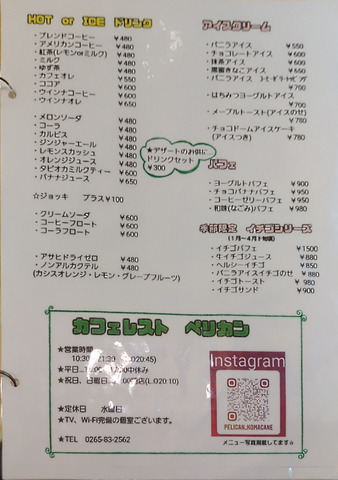 HOT or ICE ドリンク
・ブレンドコーヒー ￥480
・アメリカンコーヒー ￥480
・紅茶(レモンorミルク) ￥480
・ミルク ￥480
・ゆず茶 ￥480
・カフェオレ ￥550
・ココア ￥600
・ウインナコーヒー ￥600
・ウインナオレ ￥650
・メロンソーダ ￥480
・コーラ ￥480
・カルピス ￥480
・ジンジャーエール ￥480
・レモンスカッシュ ￥480
・オレンジジュース ￥480
・タピオカミルクティー ￥600
・バナナジュース ￥650
☆ジョッキ プラス￥100
・クリームソーダ ￥600
・コーヒーフロート ￥600
・コーラフロート ￥600
・アサヒドライゼロ ￥480
・ノンアルカクテル ￥480
(カシスオレンジ・レモン・グレープフルーツ)
★デザートのお供に
ドリンクセット
￥300
アイスクリーム
・バニラアイス ￥550
・チョコレートアイス ￥600
・抹茶アイス ￥600
・黒蜜きなこアイス ￥650
・バニラアイス
￥700
・はちみつヨーグルトアイス
￥700
・メープルトースト(アイスのせ)
￥780
・チョコドームアイスケーキ
(アイスつき) ￥780
パフェ
・ヨーグルトパフェ ￥900
・チョコバナナパフェ ￥950
・コーヒーゼリーパフェ ￥950
・和味(なごみ)パフェ ￥980
季節限定 イチゴシリーズ
(1月～4月下旬頃)
・イチゴパフェ ￥1500
・生イチゴジュース ￥880
・ヘルシーイチゴ ￥850
・バニラアイスイチゴのせ ￥880
・イチゴトースト ￥980
・イチゴサンド ￥900
カフェレスト ペリカン
★営業時間
10:30 21:30 O20:45)
★平日 中休み
★祝日、日曜日 (L.O20:10)
★定休日 水曜日
★TV、Wi-Fi完備の個室ございます。
★TEL 0265-83-2562
Instagram
PELICAN_KOMACANE
メニュー写真掲載してます☆